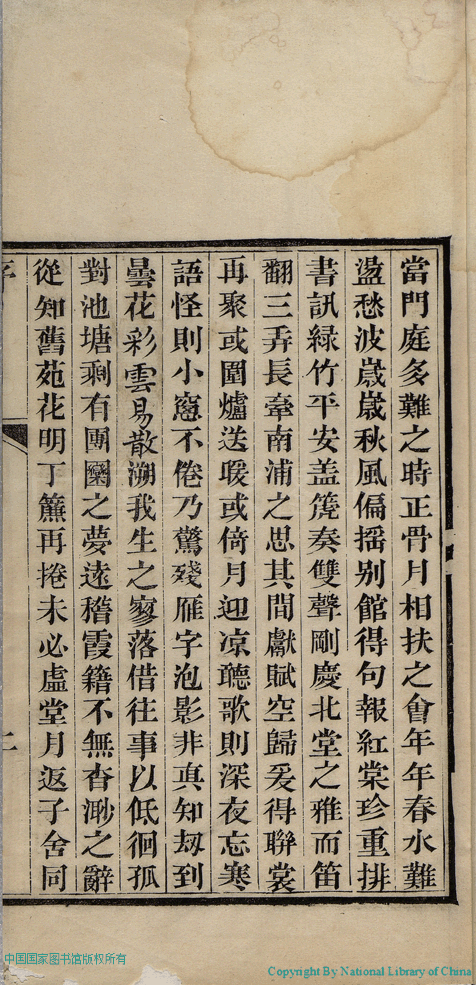 當門庭多難之時正骨月相扶之會年年春水難
盪愁波歲歲秋風偏摇别館得句報紅棠珍重排
書訊緑竹平安盖箎奏雙聲剛慶北堂之雅而笛
翻三弄長牽南浦之思其間獻賦空歸爰得聯裳
再聚或圍爐送暖或倚月迎凉聽歌則深夜忘寒
語怪則小窻不倦乃驚殘雁字泡影非真知刼到
曇花彩雲易散溯我生之寥落借往事以低徊孤
對池塘剩有團圞之夢遠稽霞籍不無杳渺之辭
從知舊苑花明丁簾再捲未必虛堂月返子舍同
序
二
中国国家图书馆版权所有
Copyright By National Library of China